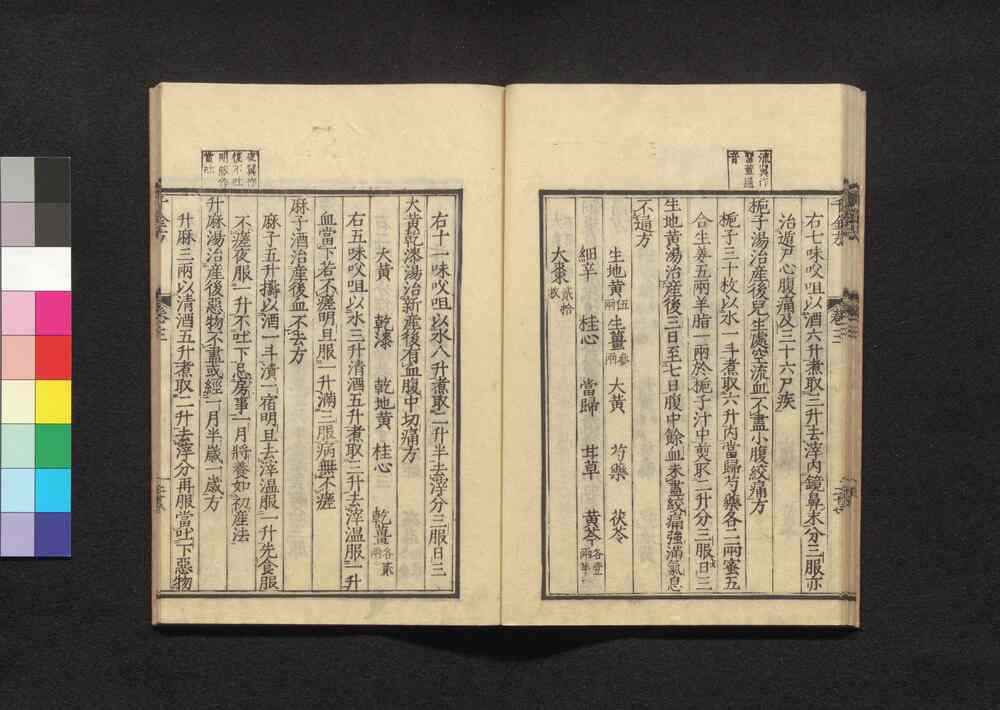 右七味㕮咀以酒六升煮取三升去滓内鏡鼻末分三服亦
治遁尸心腹痛及三十六尸疾
梔子湯治産後兒生處空流血不盡小腹絞痛方
梔子三十枚以水一斗煮取六升内當歸芍藥各二兩蜜五
合生姜五兩羊脂一兩於梔子汁中煎取二升分三服日三
生地黄湯治産後三日至七日腹中餘血未盡絞痛強滿氣息
不通方
生地黄伍兩 生薑參兩 大黄 芍藥 茯苓
細辛 桂心 當歸 甘草 黄芩各壹兩半
大棗貳拾枚
右十一味㕮咀以水八升煮取二升半去滓分三服日三
大黄乾漆湯治新産後有血腹中切痛方
大黄 乾漆 乾地黄 桂心 乾薑各貳兩
右五味㕮咀以水三升清酒五升煮取三升去滓温服一升
血當下若不瘥明旦服一升滿三服病無不瘥
麻子酒治産後血不去方
麻子五升擣以酒一斗漬一宿明旦去滓温服一升先食服
不瘥夜服一升不吐下忌房事一月將養如初産法
升麻湯治産後惡物不盡或經一月半歳一歳方
升麻三兩以清酒五升煮取二升去滓分再服當吐下惡物